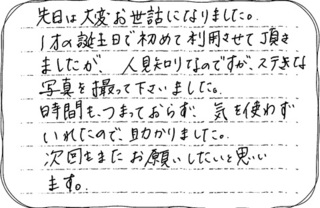 先日は大変お世話になりました。
1才の誕生日で初めて利用させて頂き
ましたが 人見知りなのですが、ステキな
写真を撮って下さいました。
時間も、つまっておらず 気を使わず
いれたので、助かりました。
次回もまたお願いしたいと思い
ます。